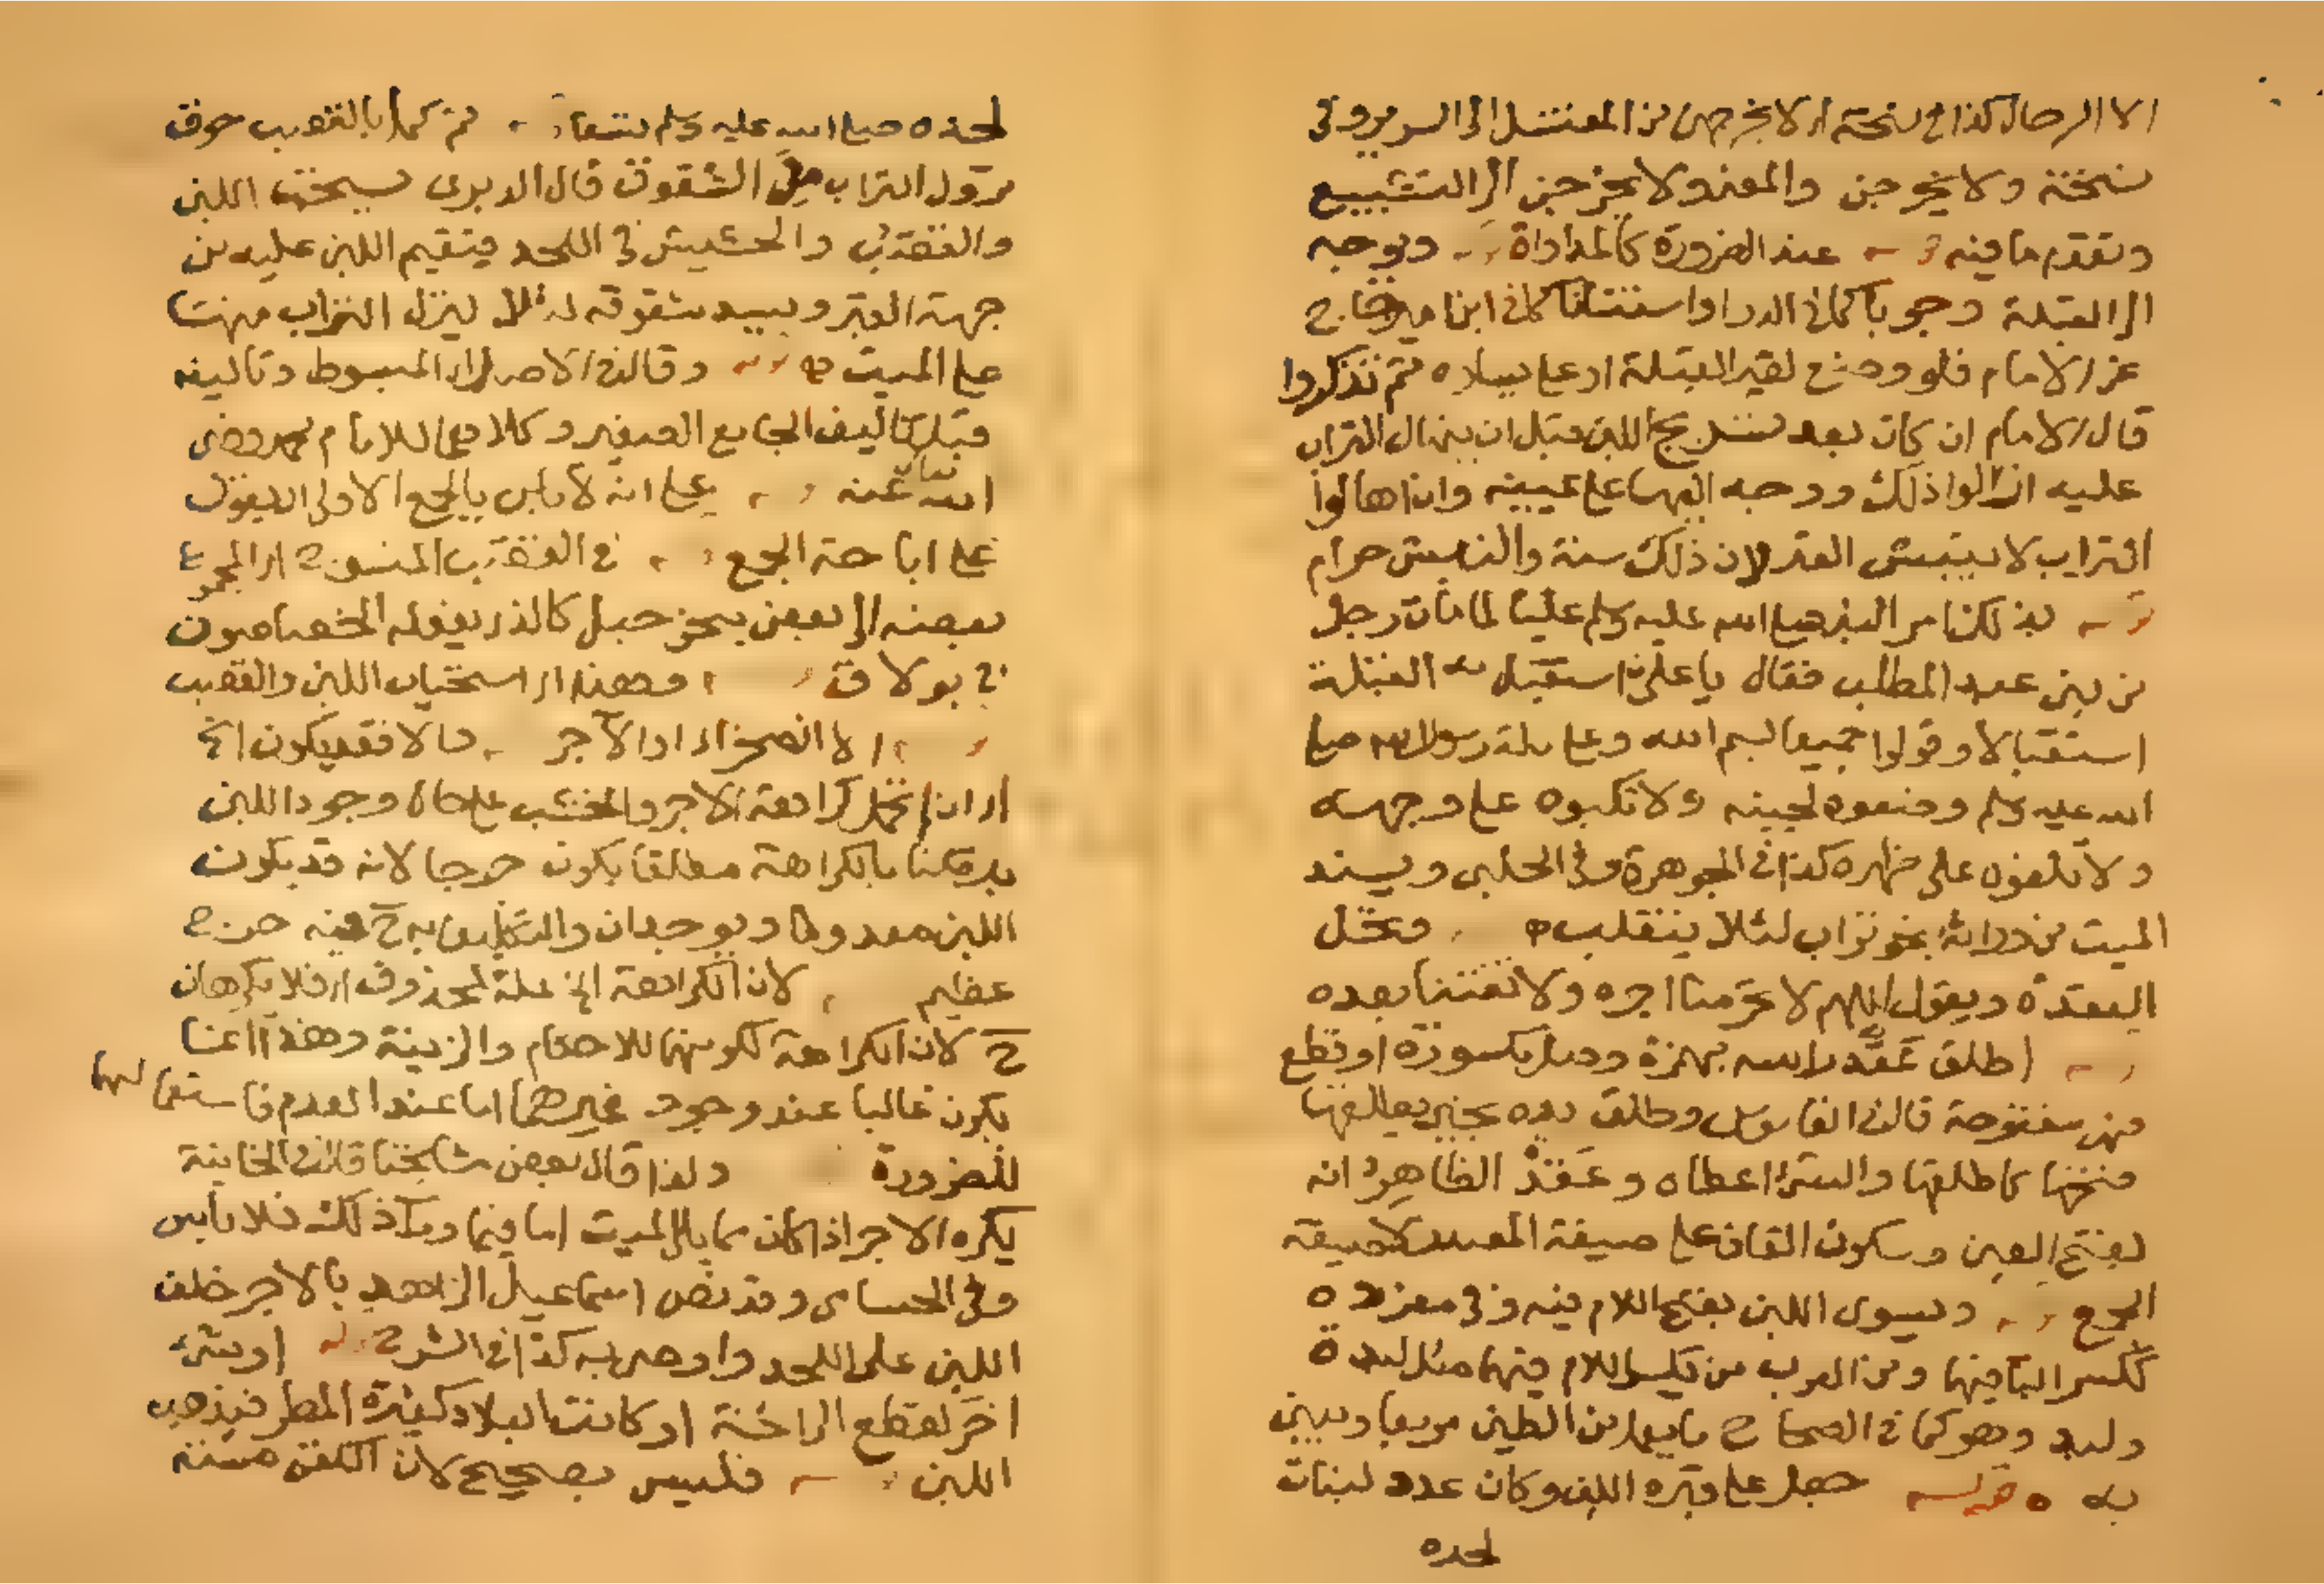 الا الرجال كذا في نسخة اي لا يخرجن من المغتسل الى السرير وفي
نسخة ولا يخرجن والمعنى ولا يخرجن الى التشييع
وتقدم ما فيه عند الضرورة كالمداواة ويوجه
الى القبلة وجوبا كما في الدر او استنانا كما في ابن امير حاج
عن الامام فلو وضع لغير القبلة او على يساره ثم تذكروا
قال الامام ان كان بعد تشريج اللبن قبل ان ينهال التراب
عليه ازالوا ذلك ووجه اليها على يمينه وان اهالوا
التراب لا ينبش القبر لان ذلك سنة والنبش حرام
بذلك امر النبي صلى الله عليه وسلم عليا لما مات رجل
من بني عبد المطلب فقال يا علي استقبل به القبلة
استقبالا وقولوا جميعا بسم الله وعلى ملة رسول الله صلى
الله عليه وسلم وضعوه لجنبه ولا تكبوه على وجهه
ولا تلقوه على ظهره كذا في الجوهرة وفي الحلبي ويسند
الميت من ورائه بنحو تراب لئلا ينقلب وتحل
العقدة ويقول اللهم لا تحرمنا اجره ولا تفتنا بعده
اطلق عقد راسه بهمزة وصل مكسورة او قطع
مفتوحة قال في القاموس وطلق يده بخير يطلقها
فتحها كاطلقها والشئ اعطاه وعقد الظاهر انه
بفتح العين وسكون القاف على صيغة المصدر لا صيغة
الجمع ويسوى اللبن بفتح اللام فيه وفي مفرده
ككسر البا فيها ومن العرب من يكسر اللام فيهما مثل لبدة
ولبد وهو كما في الصحاح ما يعمل من الطين مربعا ويبنى
به جعل على قبره اللبن وكان عدد لبنات
لحده
لحده صلى الله عليه وسلم تسعا ثم كمل بالقصب خوف
نزول التراب من الشقوق قال الديري يستحب اللبن
والقصب والحشيش في اللحد فيقيم اللبن عليه من
جهة القبر ويسد شقوقه لئلا ينزل التراب منها
على الميت وقال في الاصل اي المبسوط وتاليفه
قبل تاليف الجامع الصغير وكلاهما للامام محمد رضي
الله تعالى عنه على انه لا باس بالجمع الاولى ان يقول
على اباحة الجمع في القصب المنسوج اي المجموع
بعضه الى بعض بنحو حبل كالذي يفعله الخصاصون
في بولاق وهذا اي استحباب اللبن والقصب
الا الصخر اي او الآجر والا فقد يكون الخ
اي ان لم تحمل كراهة الاجر والخشب على حالة وجود اللبن
بل قلنا بالكراهة مطلقا يكون حرجا لانه قد يكون
اللبن معدوما ويوجدان والتكليف به ح فيه حرج
عظيم لان الكراهة الخ علة لمحذوف اي فلا يكرهان
ح لان الكراهة لكونهما للاحكام والزينة وهذا انما
يكون غالبا عند وجود غيرهما اما عند العدم فاستعمالهما
للضرورة ولذا قال بعض مشايخنا قال في الخانية
يكره الاجر اذا كان مما يلي الميت اما فيما وراء ذلك فلا باس
وفي الحسامي وقد نص اسماعيل الزاهد بالاجر خلف
اللبن على اللحد واوصى به كذا في الشرح او شئ
اخر لقطع الرائحة او كانت البلاد كثيرة المطر فيذهب
اللبن فليس بصحيح لان الكفن منه